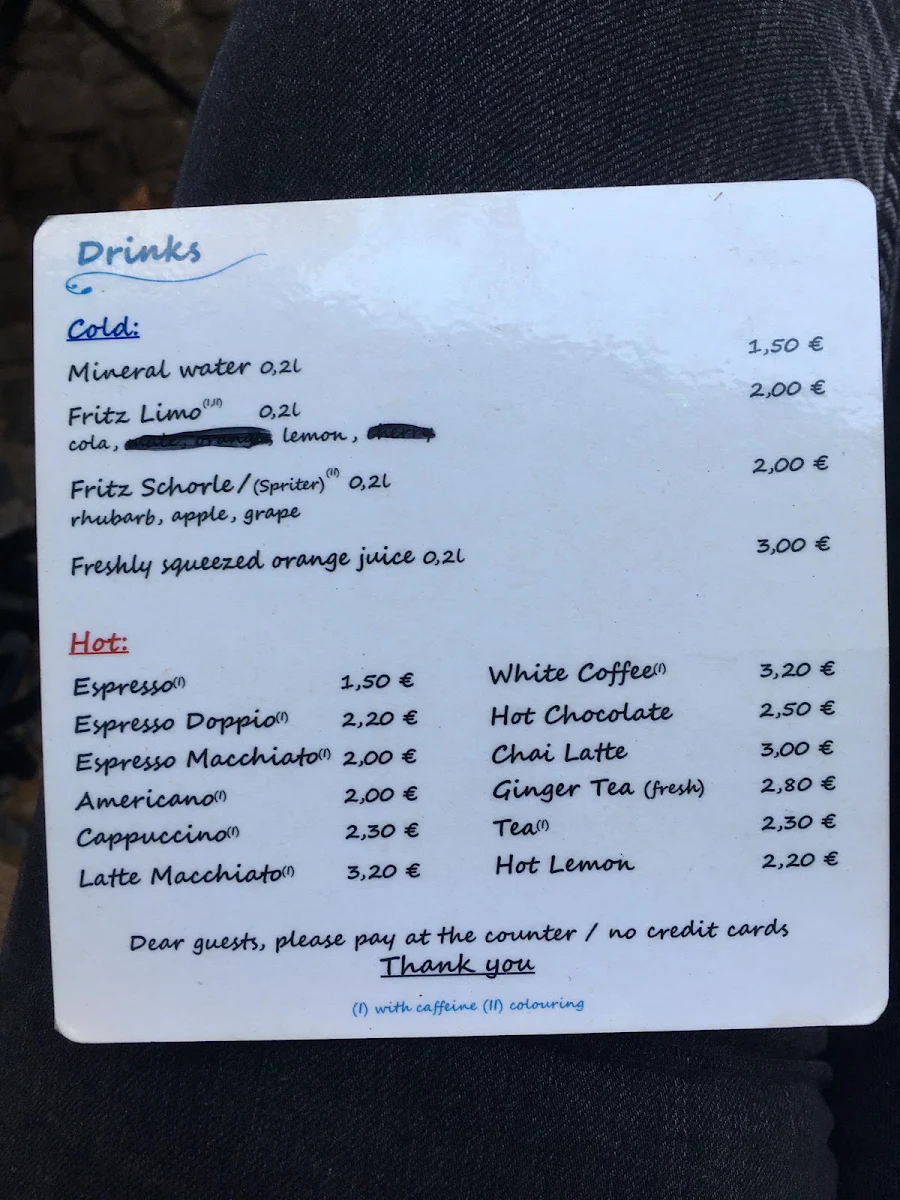 Drinks
Cold:
Mineral water 0,2l 1,50 €
Fritz Limo(I,II) 0,2l 2,00 €
cola, lemon,
Fritz Schorle/(Spriter)(II) 0,2l 2,00 €
rhubarb, apple, grape
Freshly squeezed orange juice 0,2l 3,00 €
Hot:
Espresso(I) 1,50 €
Espresso Doppio(I) 2,20 €
Espresso Macchiato(I) 2,00 €
Americano(I) 2,00 €
Cappuccino(I) 2,30 €
Latte Macchiato(I) 3,20 €
White Coffee(I) 3,20 €
Hot Chocolate 2,50 €
Chai Latte 3,00 €
Ginger Tea (fresh) 2,80 €
Tea(I) 2,30 €
Hot Lemon 2,20 €
Dear guests, please pay at the counter / no credit cards
Thank you
(I) with caffeine (II) colouring